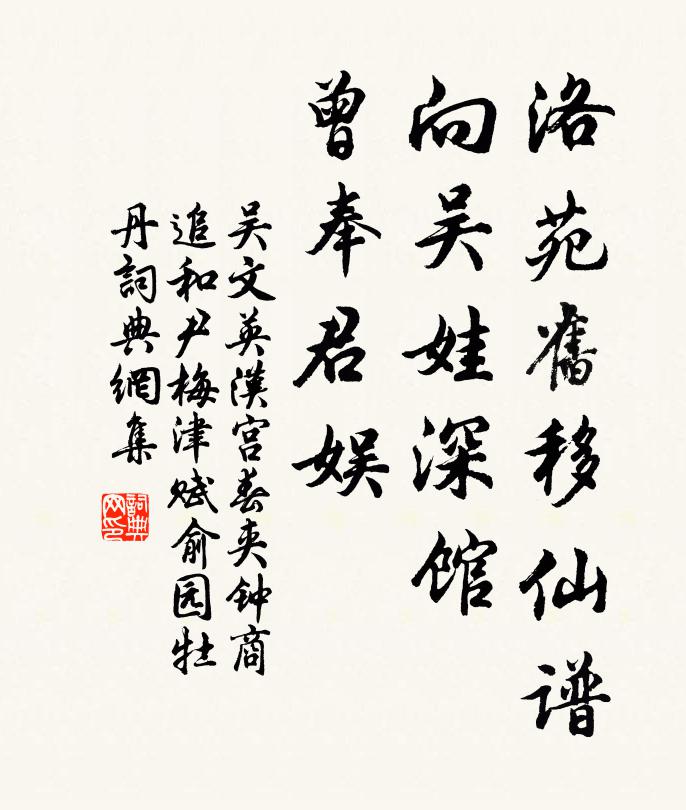 洛苑舊移仙谱
向吴娃深馆
曾奉君娱
吴文英漢宫春夹钟商
追和尹梅津赋俞园牡
丹詞典網集
詞典
网印